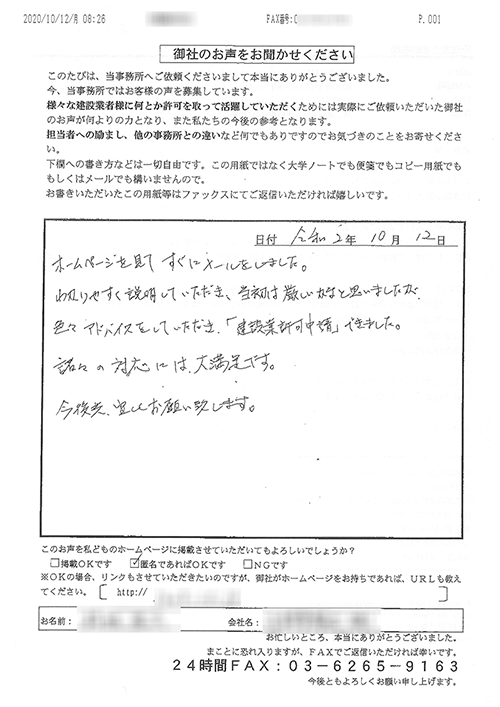 2020/10/12/月 08:26 FAX番号:0 P.001
御社のお声をお聞かせください
このたびは、当事務所へご依頼くださいまして本当にありがとうございました。
今、当事務所ではお客様の声を募集しています。
様々な建設業者様に何とか許可を取って活躍していただくためには実際にご依頼いただいた御社
のお声が何よりの力となり、また私たちの今後の参考となります。
担当者への励まし、他の事務所との違いなど何でもありですのでお気づきのことをお寄せくださ
い。
下欄への書き方などは一切自由です。この用紙ではなく大学ノートでも便箋でもコピー用紙でも
もしくはメールでも構いませんので。
お書きいただいたこの用紙等はファックスにてご返信いただければ嬉しいです。
日付 令和2年10月12日
ホームページを見て すぐにメールをしました。
わかりやすく説明していただき、当初は厳しいかなと思いましたが、
色々アドバイスをしていただき、「建設業許可申請」できました。
諸々の対応には、大満足です。
今後共、宜しくお願い致します。
このお声を私どものホームページに掲載させていただいてもよろしいでしょうか?
□掲載OKです ☑匿名であればOKです □NGです
※OKの場合、リンクもさせていただきたいのですが、御社がホームページをお持ちであれば、URLも教え
てください。〔 http:// 〕
お名前: 会社名:
お忙しいところ、本当にありがとうございました。
まことに恐れ入りますが、FAXでご返信いただければ幸いです。
24時間FAX:03-6265-9163
今後ともよろしくお願い申し上げます。